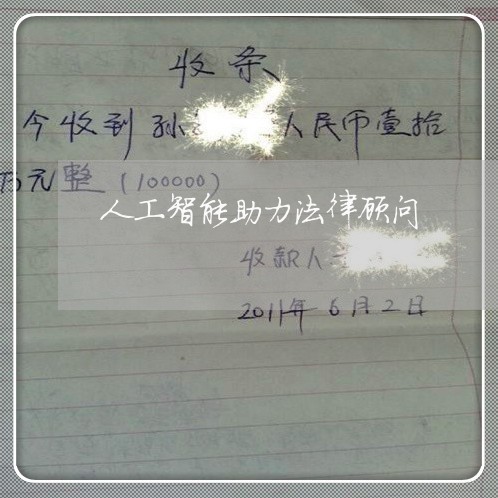 收条
今收到孙 人民币壹拾
万元整（100000）
人工智能助力法律顾问
收款人
2011年6月2日